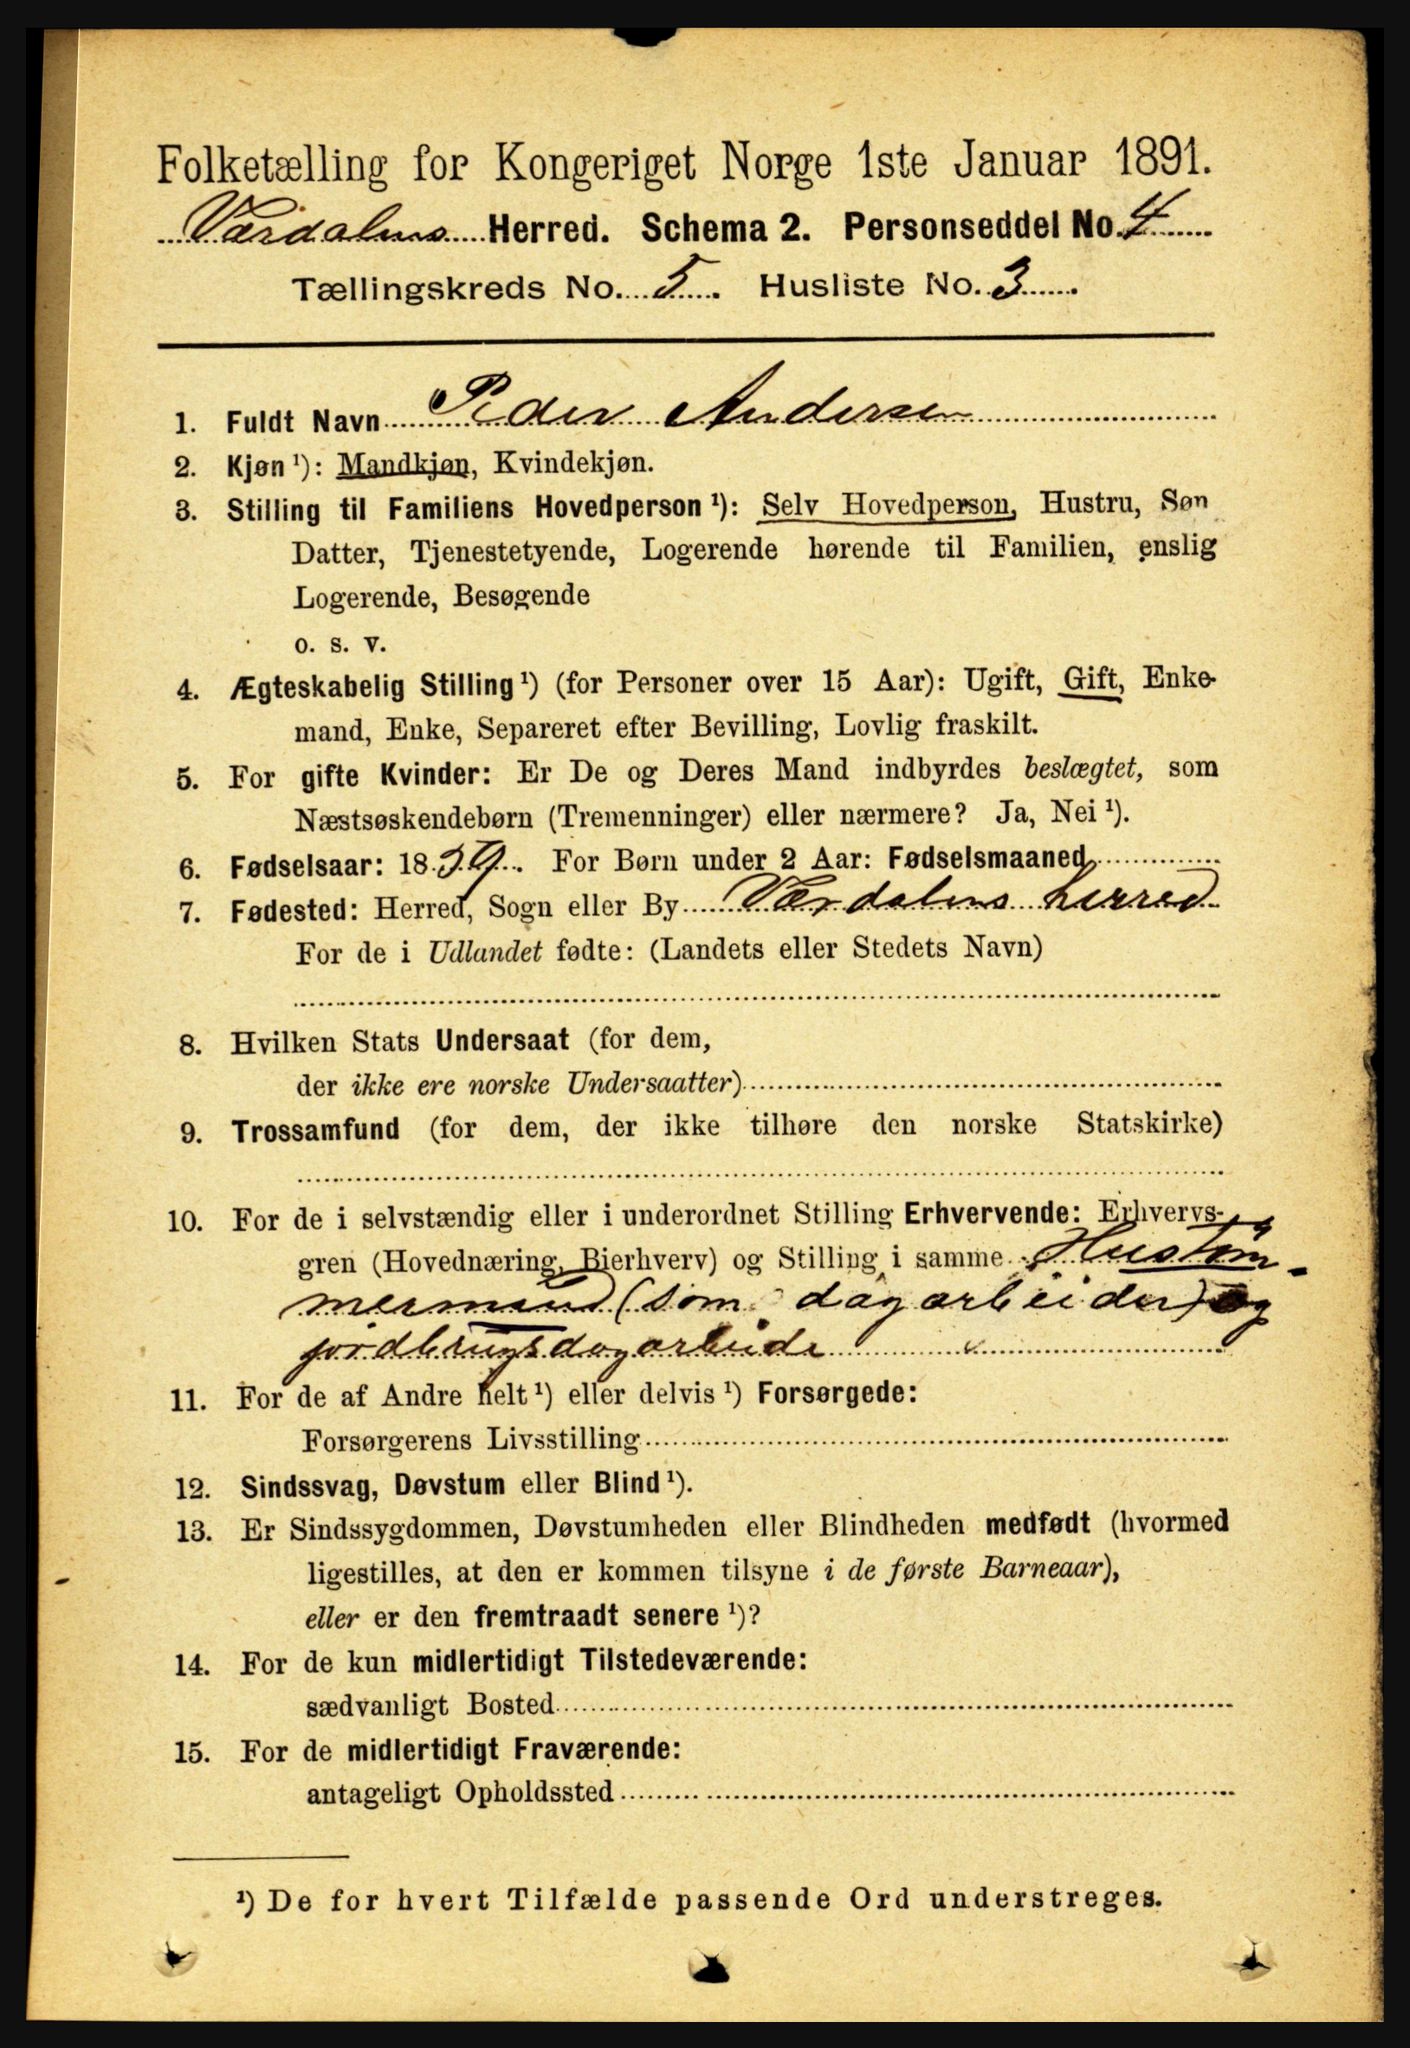 Folketælling for Kongeriget Norge 1ste Januar 1891.
Værdalens Herred. Schema 2. Personseddel No. 4
Tællingskreds No. 5. Husliste No. 3
1. Fuldt Navn Peder Andersen
2. Kjøn ¹): Mandkjøn, Kvindekjøn.
3. Stilling til Familiens Hovedperson ¹): Selv Hovedperson, Hustru, Søn
Datter, Tjenestetyende, Logerende hørende til Familien, enslig
Logerende, Besøgende
o. s. v.
4. Ægteskabelig Stilling ¹) (for Personer over 15 Aar): Ugift, Gift, Enke-
mand, Enke, Separeret efter Bevilling, Lovlig fraskilt.
5. For gifte Kvinder: Er De og Deres Mand indbyrdes beslægtet, som
Næstsøskendebørn (Tremenninger) eller nærmere? Ja, Nei ¹).
6. Fødselsaar: 1839. For Børn under 2 Aar: Fødselsmaaned
7. Fødested: Herred, Sogn eller By Værdalens herred
For de i Udlandet fødte: (Landets eller Stedets Navn)
8. Hvilken Stats Undersaat (for dem,
der ikke ere norske Undersaatter)
9. Trossamfund (for dem, der ikke tilhøre den norske Statskirke)
10. For de i selvstændig eller i underordnet Stilling Erhvervende: Erhvervs-
gren (Hovednæring, Bierhverv) og Stilling i samme Hustøm-
mermand (som dagarbeider) og
jordbrugsdagarbeide
11. For de af Andre helt ¹) eller delvis ¹) Forsørgede:
Forsørgerens Livsstilling
12. Sindssvag, Døvstum eller Blind ¹).
13. Er Sindssygdommen, Døvstumheden eller Blindheden medfødt (hvormed
ligestilles, at den er kommen tilsyne i de første Barneaar),
eller er den fremtraadt senere ¹)?
14. For de kun midlertidigt Tilstedeværende:
sædvanligt Bosted
15. For de midlertidigt Fraværende:
antageligt Opholdssted
¹) De for hvert Tilfælde passende Ord understreges.